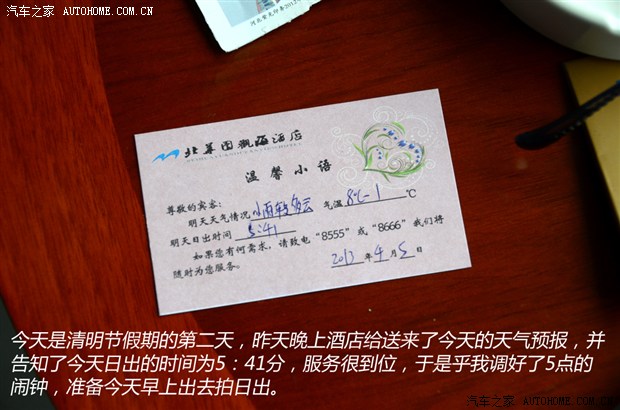 汽车之家 AUTOHOME.COM.CN
汽车之家 AUTOHOME.COM.CN
北华园观海酒店
温馨小语
尊敬的宾客:
明天天气情况 小雨转多云 气温 8℃-1 ℃
明天日出时间 5:41
如果您有何需求,请致电“8555”或“8666”我们将
随时为您服务。
2013 年 4 月 5 日
今天是清明节假期的第二天,昨天晚上酒店给送来了今天的天气预报,并
告知了今天日出的时间为5:41分,服务很到位,于是乎我调好了5点的
闹钟,准备今天早上出去拍日出。